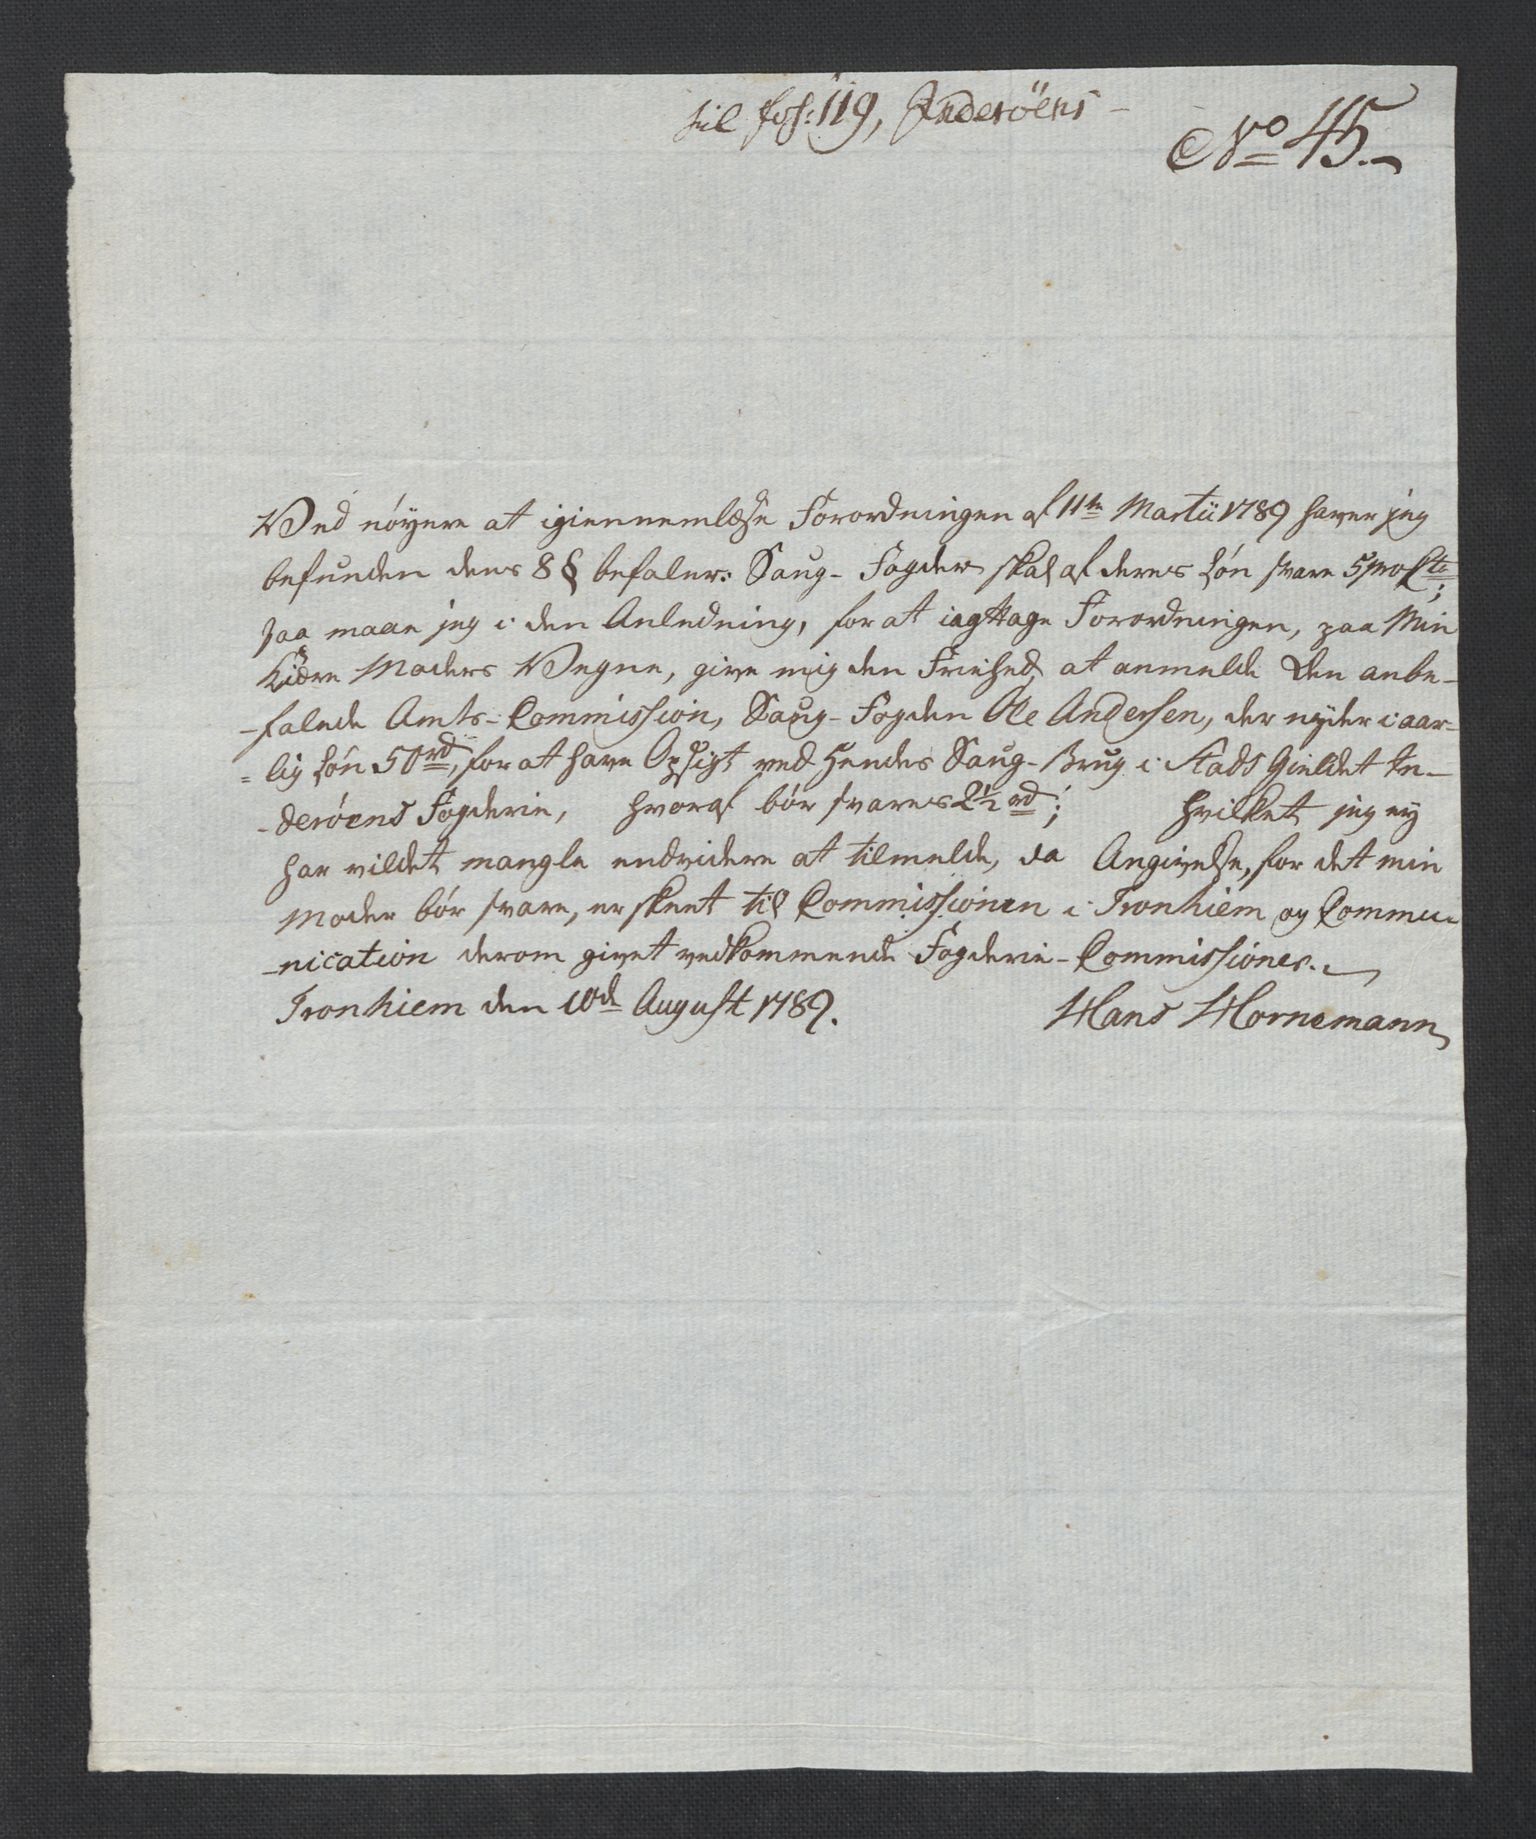 til fol: 119, Inderöens
No 45.
Ved nöyere at igiennemlæse Forordningen af 11te Martii 1789 haver jeg
befunden dens 8 § befaler: Saug-Fogder skal af deres Lön svare 5 pro Cto;
Saa maae jeg i den Anledning, for at iagttage Forordningen, paa Min
Kiære Moders Vegne, give mig den Friehed, at anmelde den anbe-
-falede Amts-Commission, Saug-Fogden Ole Andersen, der nyder i aar-
=lig Lön 50 rd, for at have Opsigt ved Hendes Saug-Brug i Stads Gieldet In-
-deröens Fogderie, hvoraf bör svares 2½ rd; hvilket jeg ey
har vildet mangle endvidere at tilmelde, da Angivelse, for det min
Moder bör svare, er skeet til Commissionen i Tronhiem og Commu-
-nication derom givet vedkommende Fogderie-Commissioner.
Tronhiem den 10de August 1789.
Hans Hornemann